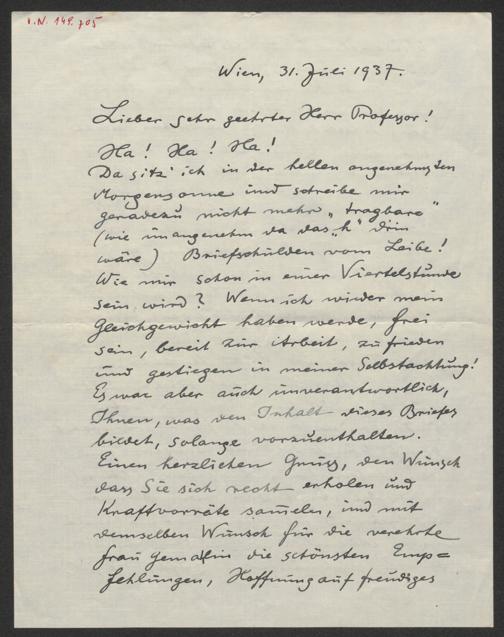 I.N. 149.705
Wien, 31. Juli 1937.
Lieber sehr geehrter Herr Professor!
Ha! Ha! Ha!
Da sitz' ich in der hellen angenehmsten
Morgensonne und schreibe mir
geradezu nicht mehr „tragbare"
(wie unangenehm da das „h" drin
wäre) Briefschulden vom Leibe!
Wie mir schon in einer Viertelstunde
sein wird? Wenn ich wieder mein
Gleichgewicht haben werde, frei
sein, bereit zur Arbeit, zufrieden
und gestiegen in meiner Selbstachtung!
Es war aber auch unverantwortlich,
Ihnen, was den Inhalt dieses Briefes
bildet, solange vorzuenthalten.
Einen herzlichen Gruss, den Wunsch
dass Sie sich recht erholen und
Kraftvorräte sam̅eln, und mit
demselben Wunsch für die verehrte
Frau Gemalin die schönsten Emp=
fehlungen, Hoffnung auf freudiges